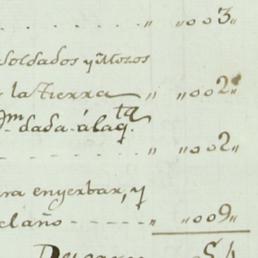 „ „003„
Soldados y Mozos
la tierra „ „002„
dada á la
„ „002„
ra enyerbar, y
el año „ „009„